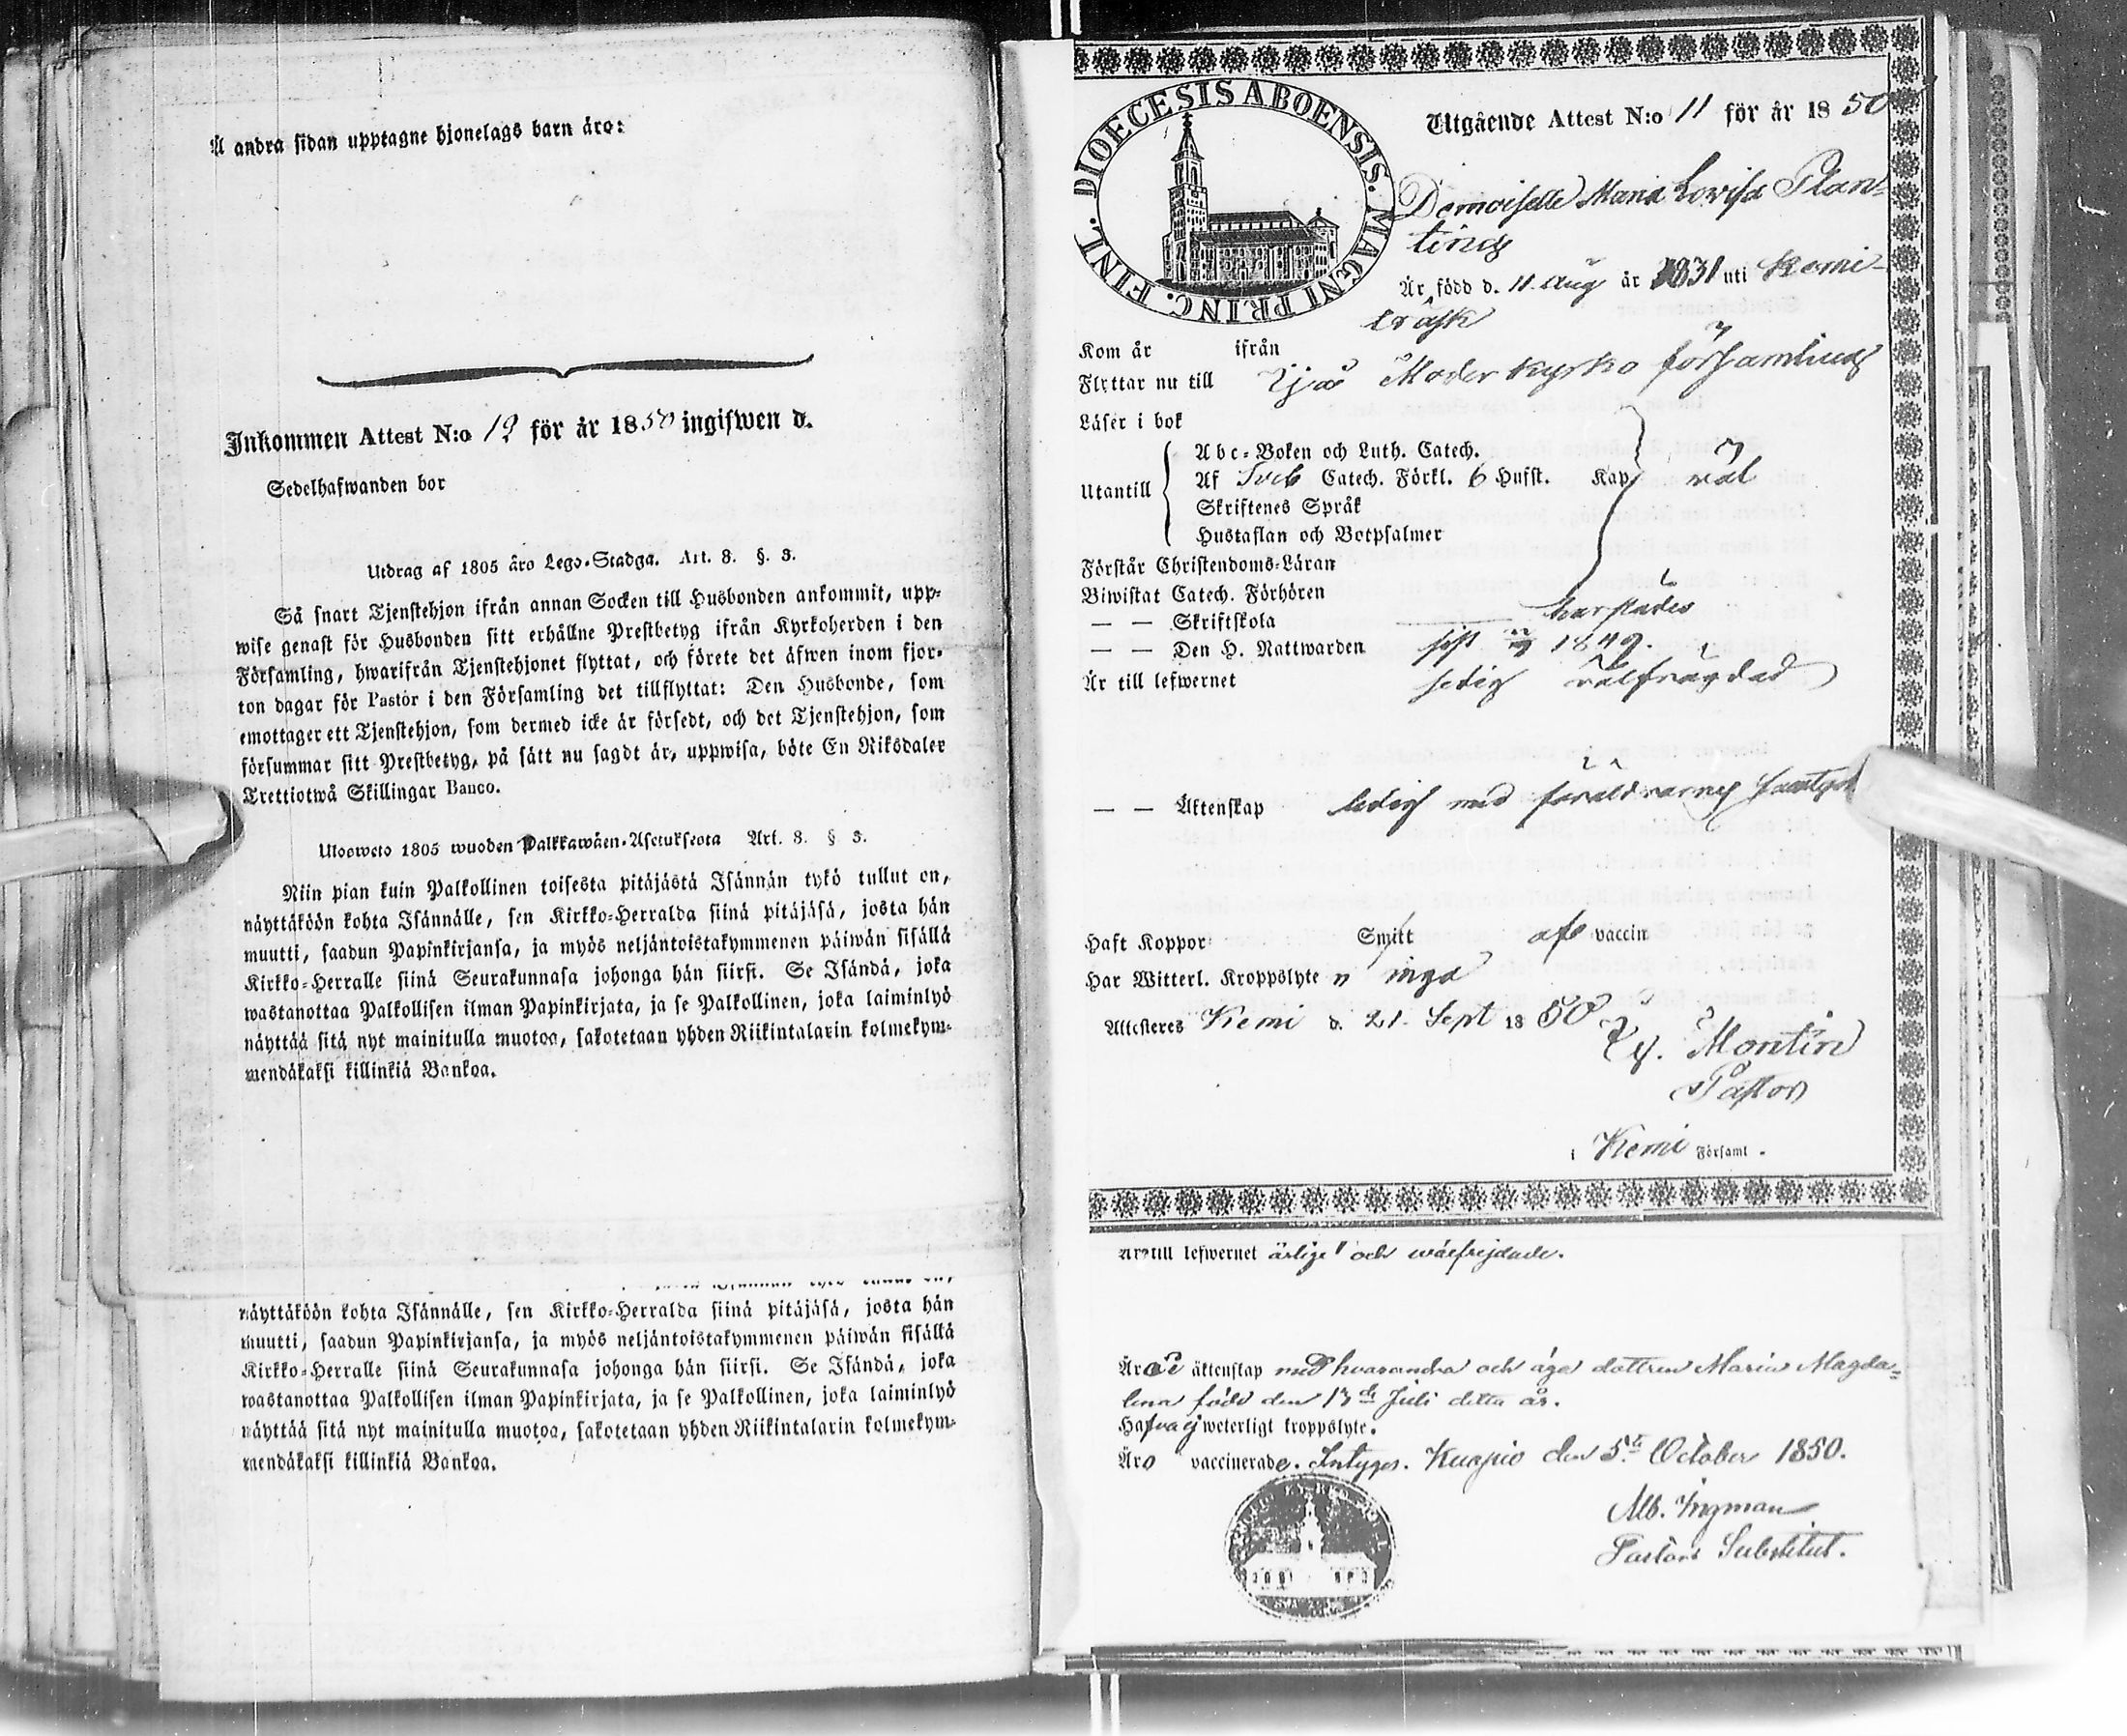 Å andra sidan upptagne hjonelags barn äro:
Inkommen Attest N:o 12 för år 1850 ingifwen d.
Sedelhafwanden bor
Utdrag af 1805 års Lego-Stadga. Art. 8. §. 3.
Så snart Tjenstehjon ifrån annan Socken till Husbonden ankommit, upp-
wise genast för Husbonden sitt erhållne Prestbetyg ifrån Kyrkoherden i den
Församling, hwarifrån Tjenstehjonet flyttat, och förete det äfwen inom fjor-
ton dagar för Pastor i den Församling det tillflyttat: Den Husbonde, som
emottager ett Tjenstehjon, som dermed icke är försedt, och det Tjenstehjon, som
försummar sitt Prestbetyg, på sätt nu sagdt är, uppwisa, böte En Riksdaler
Trettiotwå Skillingar Banco.
Ulosweto 1805 wuoden Palkkawäen-Asetuksesta Art. 8. § 3.
Niin pian kuin Palkollinen toisesta pitäjästä Isännän tykö tullut on,
näyttäköön kohta Isännälle, sen Kirkko-Herralda siinä pitäjäsä, josta hän
muutti, saadun Papinkirjansa, ja myös neljäntoistakymmenen päiwän sisällä
Kirkko-Herralle siinä Seurakunnasa johonga hän siirsi. Se Isändä, joka
wastanottaa Palkollisen ilman Papinkirjata, ja se Palkollinen, joka laiminlyö
näyttää sitä nyt mainitulla muotoa, sakotetaan yhden Riikintalarin kolmekym-
mendäkaksi killinkiä Bankoa.
näyttäköön kohta Isännälle, sen Kirkko-Herralda siinä pitäjäsä, josta hän
muutti, saadun Papinkirjansa, ja myös neljäntoistakymmenen päiwän sisällä
Kirkko-Herralle siinä Seurakunnasa johonga hän siirsi. Se Isändä, joka
wastanottaa Palkollisen ilman Papinkirjata, ja se Palkollinen, joka laiminlyö
näyttää sitä nyt mainitulla muotoa, sakotetaan yhden Riikintalarin kolmekym-
mendäkaksi killinkiä Bankoa.
DIOECESIS ABOENSIS. MAGNI PRINC. FINL.
Utgående Attest N:o 11 för år 1850
Demoiselle Maria Lovisa Plan-
ting
Är född d. 11 Aug år 1831 uti Kemi-
träsk
Kom år ifrån
Flyttar nu till Ijo Moderkyrko församling
Läser i bok
Utantill
Abc-Boken och Luth. Catech.
Af Sveb Catech. Förkl. 6 Hufst. Kap väl
Skriftenes Språk
Hustaflan och Botpsalmer
Förstår Christendoms-Läran
Biwistat Catech. Förhören
— — Skriftskola
— — Den H. Nattwarden sist 1849.
Är till lefwernet välfrägdad
— — Äktenskap ledig med föräldrarnes
Haft Koppor Smitt af vaccin
Har Witterl. Kroppslyte inga
Attesteras Kemi d. 21 Sept 1850
Montin
Pastor
i Kemi Församl.
Äro till lefwernet ärlige och wälfrejdade.
Äro i äktenskap med hvarandra och äga dottren Maria Magda-
lena född den 13de Juli detta år.
Hafva ej weterligt kroppslyte.
Äro vaccinerade. Intygas. Kuopio den 5te October 1850.
Alb. Ingman
Pastors Substitut.